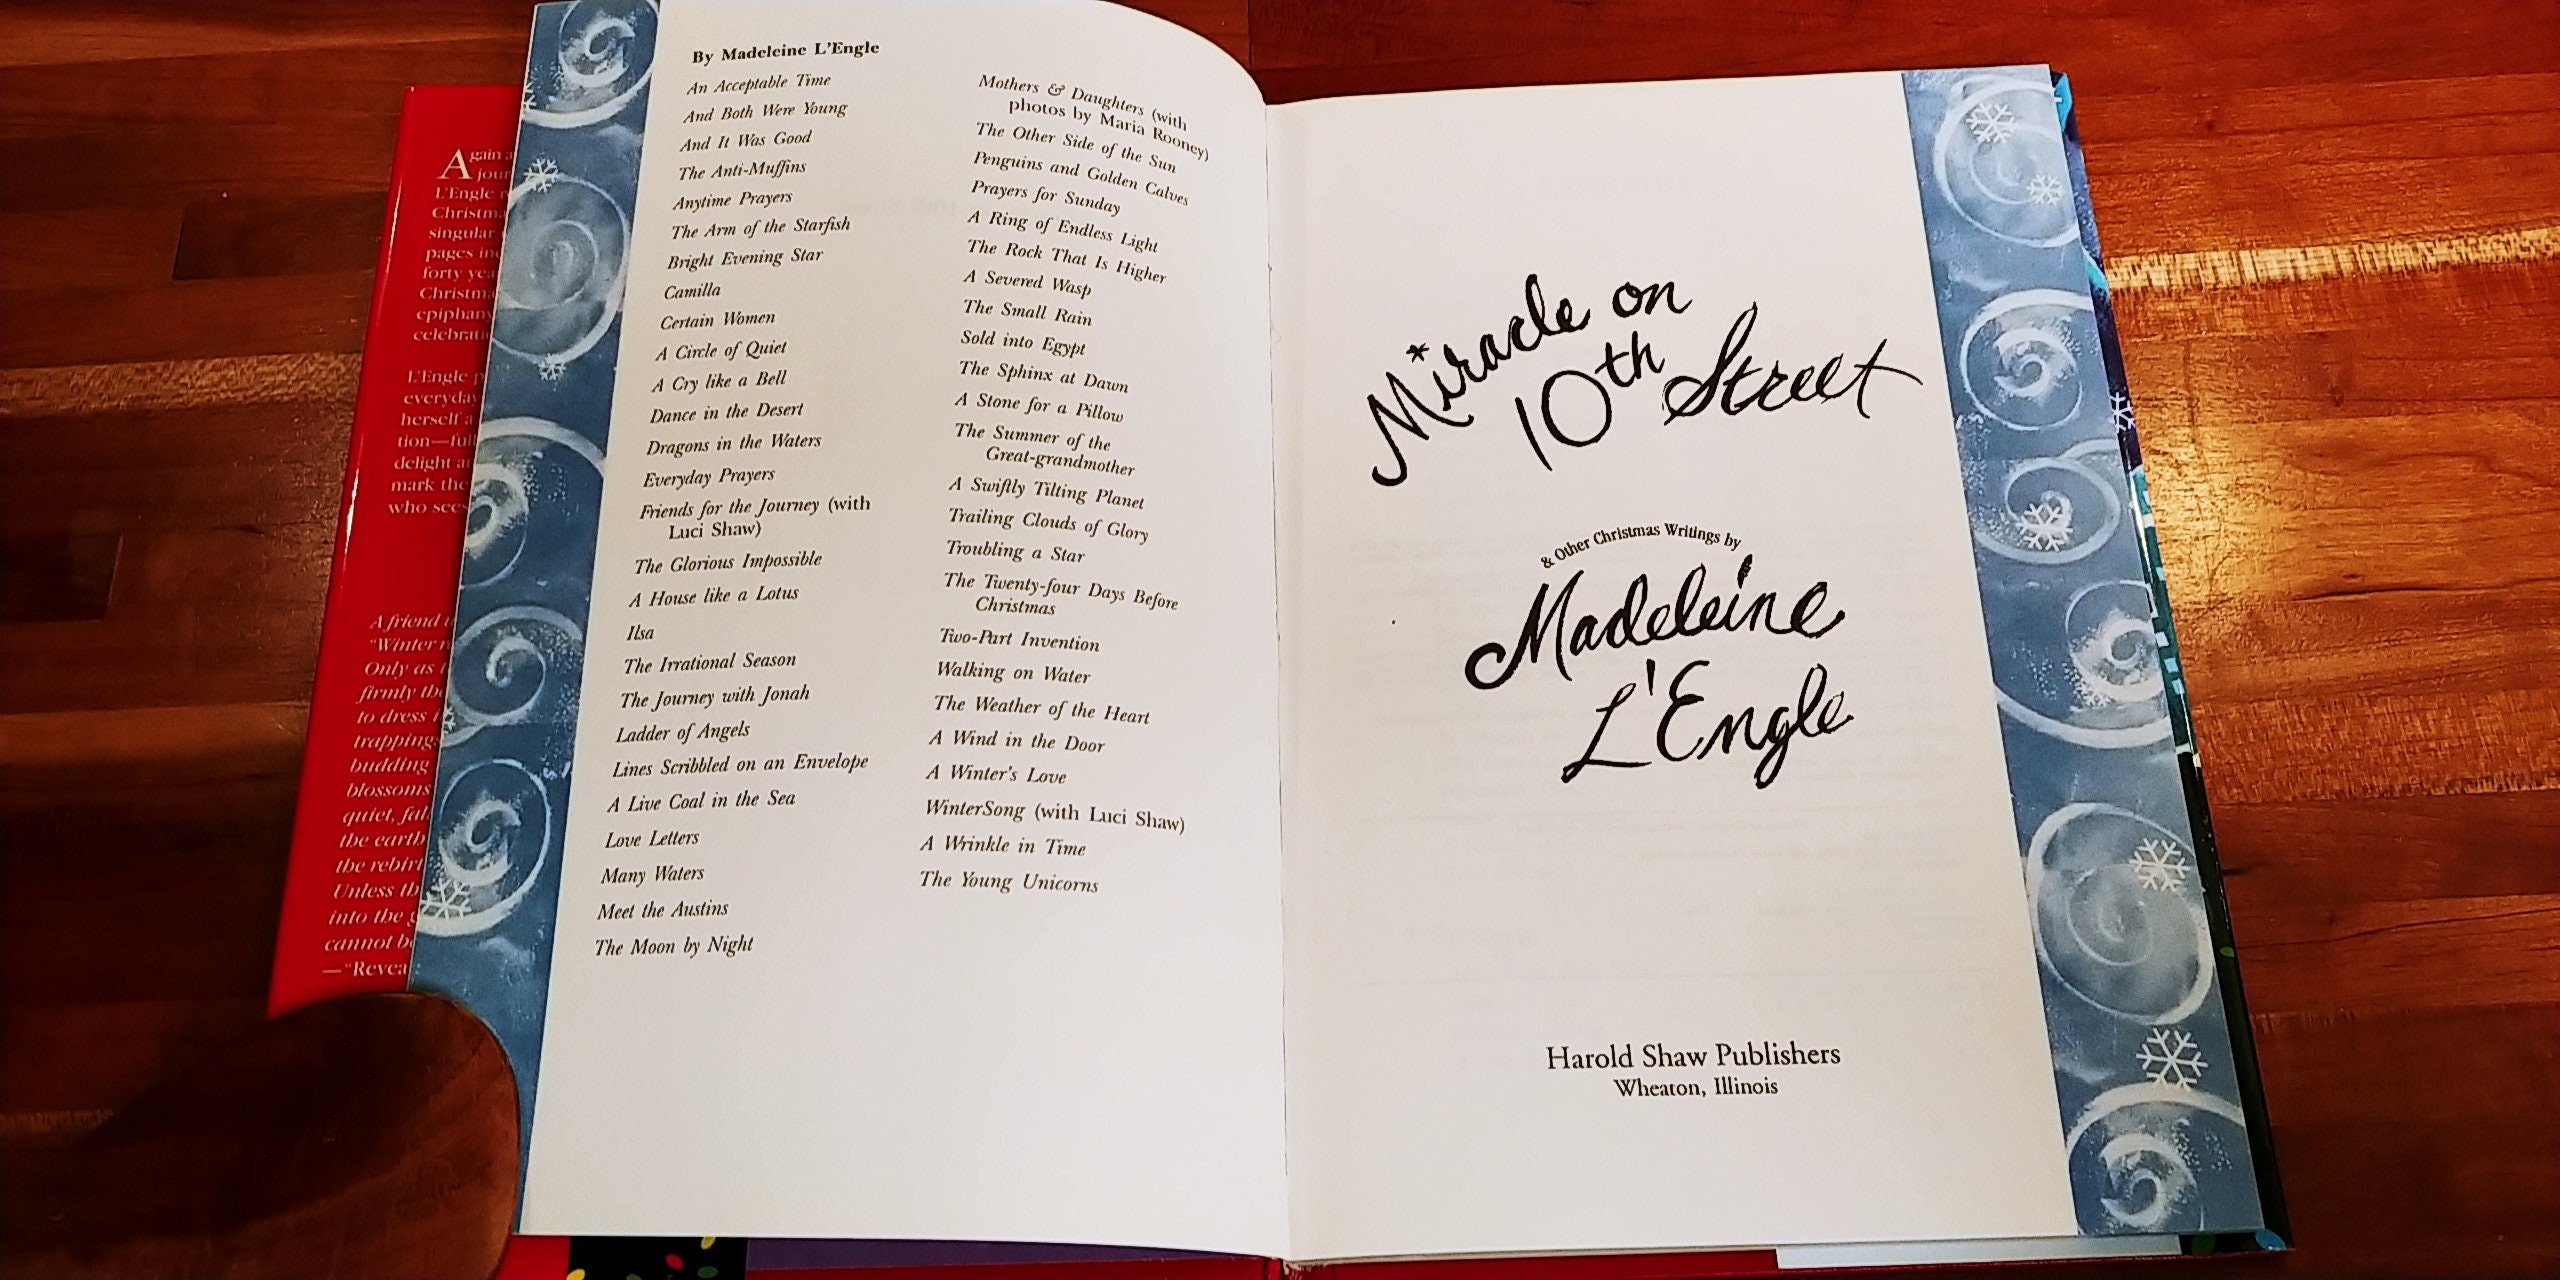 Again a
jour
L'Engle
Christma
singular
pages in
forty yea
Christma
epiphany
celebrati
L'Engle p
everyday
herself a
tion—full
delight a
mark the
who sees
A friend
"Winter
Only as
firmly the
to dress i
trappings
budding
blossoms
quiet, fal
the earth
the rebirt
Unless th
into the g
cannot be
—"Revea
By Madeleine L'Engle
An Acceptable Time
And Both Were Young
And It Was Good
The Anti-Muffins
Anytime Prayers
The Arm of the Starfish
Bright Evening Star
Camilla
Certain Women
A Circle of Quiet
A Cry like a Bell
Dance in the Desert
Dragons in the Waters
Everyday Prayers
Friends for the Journey (with
Luci Shaw)
The Glorious Impossible
A House like a Lotus
Ilsa
The Irrational Season
The Journey with Jonah
Ladder of Angels
Lines Scribbled on an Envelope
A Live Coal in the Sea
Love Letters
Many Waters
Meet the Austins
The Moon by Night
Mothers & Daughters (with
photos by Maria Rooney)
The Other Side of the Sun
Penguins and Golden Calves
Prayers for Sunday
A Ring of Endless Light
The Rock That Is Higher
A Severed Wasp
The Small Rain
Sold into Egypt
The Sphinx at Dawn
A Stone for a Pillow
The Summer of the
Great-grandmother
A Swiftly Tilting Planet
Trailing Clouds of Glory
Troubling a Star
The Twenty-four Days Before
Christmas
Two-Part Invention
Walking on Water
The Weather of the Heart
A Wind in the Door
A Winter's Love
WinterSong (with Luci Shaw)
A Wrinkle in Time
The Young Unicorns
Miracle on
10th Street
& Other Christmas Writings by
Madeleine
L'Engle
Harold Shaw Publishers
Wheaton, Illinois